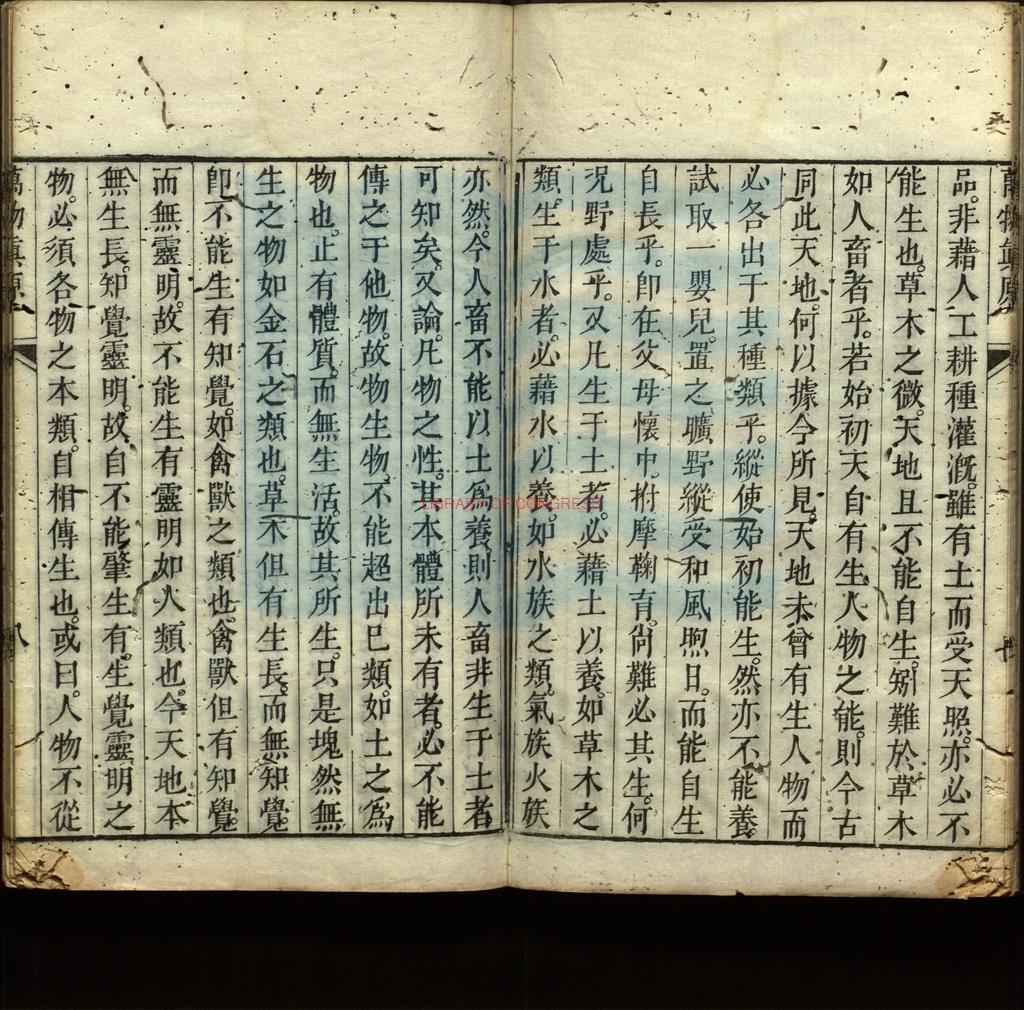 萬物真原
品。非藉人工耕種灌漑。雖有土而受天照。亦必不
能生也。草木之微。天地且不能自生。矧難於草木
如人畜者乎。若始初天自有生人物之能。則今古
同此天地。何以據今所見。天地未曾有生人物而
必各出于其種類乎。縱使始初能生。然亦不能養。
試取一嬰兒。置之曠野。縱受和風煦日。而能自生
自長乎。卽在父母懷中。拊摩鞠育。尙難必其生。何
況野處乎。又凡生于土者。必藉土以養。如草木之
類。生于水者。必藉水以養。如水族之類。氣族火族
亦然。今人畜不能以土爲養。則人畜非生于土者
可知矣。又論。凡物之性。其本體所未有者。必不能
傳之于他物。故物生物。不能超出已類。如土之爲
物也。止有體質。而無生活。故其所生。只是塊然無
生之物。如金石之類也。草木但有生長。而無知覺。
卽不能生有知覺。如禽獸之類也。禽獸但有知覺。
而無靈明。故不能生有靈明。如人類也。今天地本
無生長。知覺靈明。故自不能肇生有。生覺靈明之
物。必須各物之本類。自相傳生也。或曰。人物不從
萬物眞原
八
LIBRARY OF CONGRESS